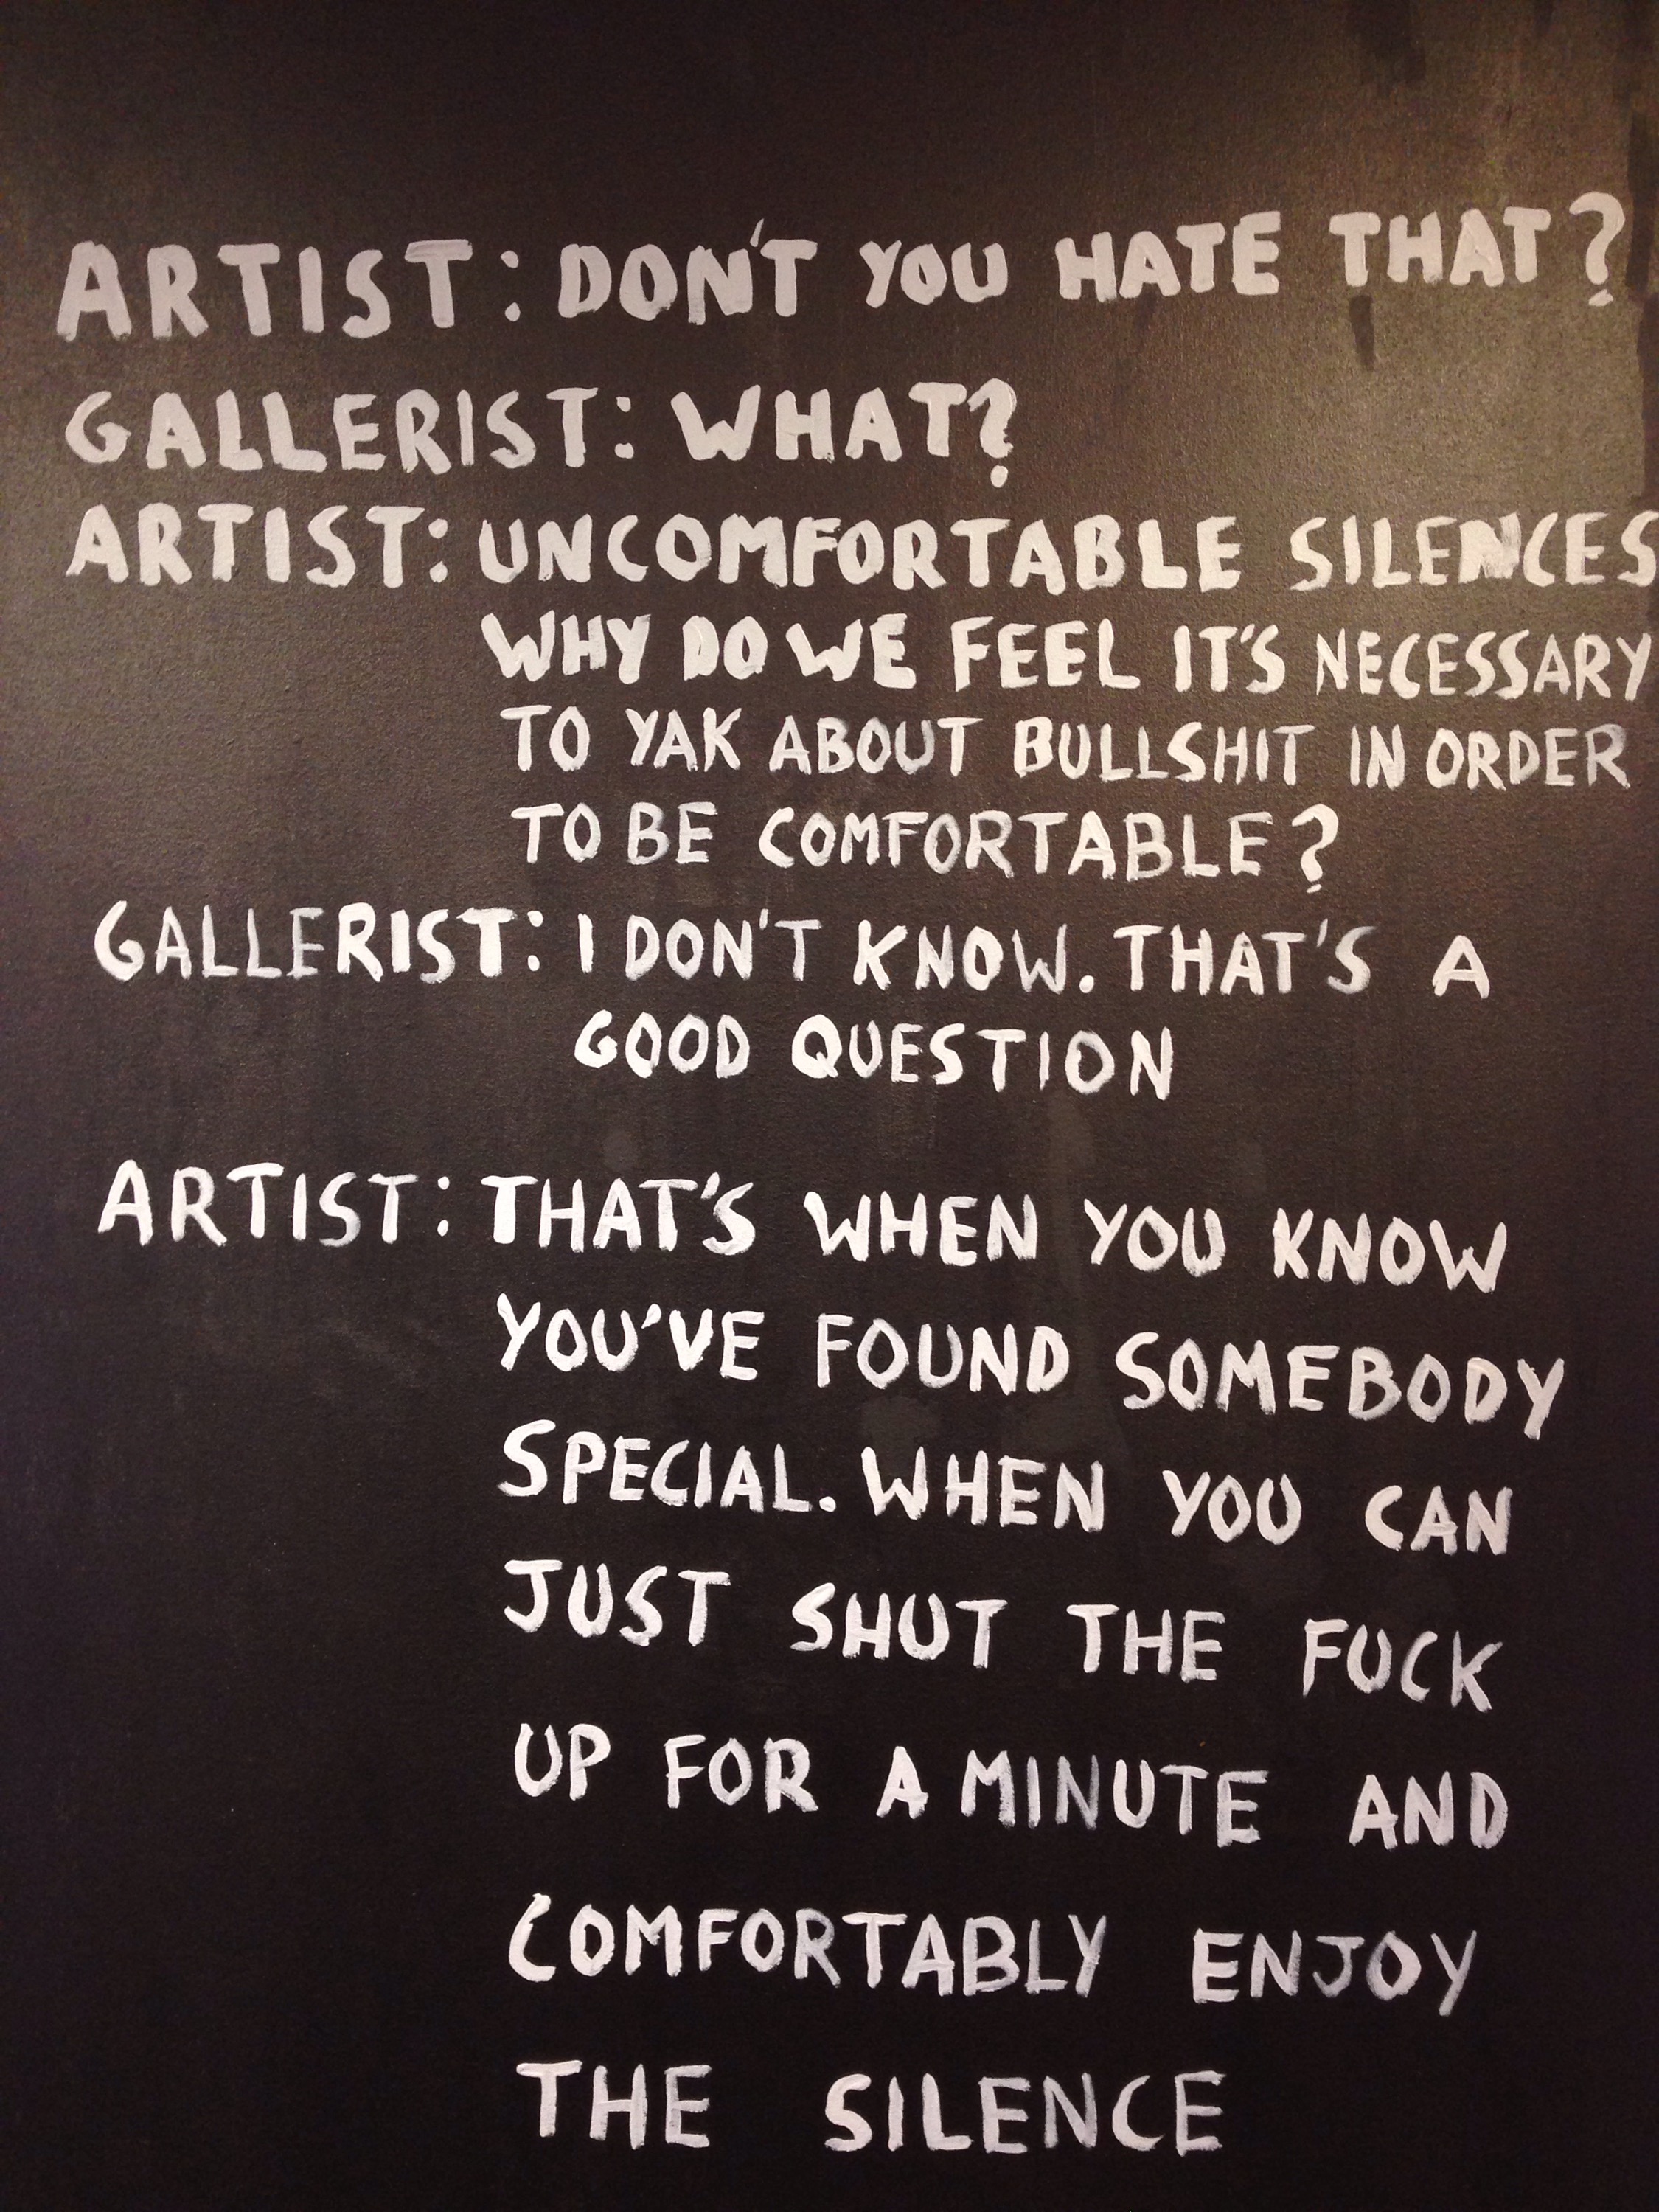 ARTIST: DON'T YOU HATE THAT?
GALLERIST: WHAT?
ARTIST: UNCOMFORTABLE SILENCES
WHY DO WE FEEL IT'S NECESSARY
TO YAK ABOUT BULLSHIT IN ORDER
TO BE COMFORTABLE?
GALLERIST: I DON'T KNOW. THAT'S A
GOOD QUESTION
ARTIST: THAT'S WHEN YOU KNOW
YOU'VE FOUND SOMEBODY
SPECIAL. WHEN YOU CAN
JUST SHUT THE FUCK
UP FOR A MINUTE AND
COMFORTABLY ENJOY
THE SILENCE